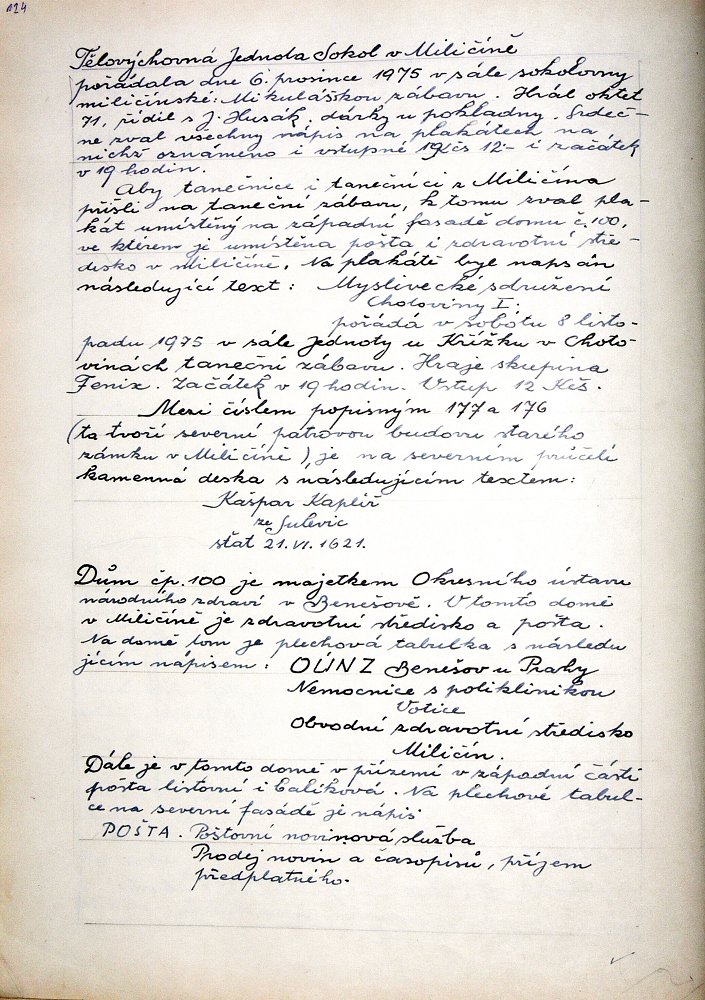 124
Tělovýchovná Jednota Sokol v Miličíně
pořádala dne 6. prosince 1975 v sále sokolovny
miličínské: Mikulášskou zábavu. Hrál oktet
71, řídil s J. Husák, dárky u pokladny. Srdeč-
ně zval všechny nápis na plakátech na
nichž oznámeno i vstupné Kčs 12- i začátek
v 19 hodin.
Aby tanečnice i tanečníci z Miličína
přišli na taneční zábavu, k tomu zval pla-
kát umístěný na západní fasadě domu č. 100,
ve kterém je umístěna pošta i zdravotní stře-
disko v Miličíně. Na plakátě byl napsán
následující text: Myslivecké sdružení
Chotoviny I.
pořádá v sobotu 8 listo-
padu 1975 v sále Jednoty u Křížku v Choto-
vinách taneční zábavu. Hraje skupina
Fenix. Začátek v 19 hodin. Vstup 12 Kčs.
Mezi číslem popisným 177 a 176
(ta tvoří severní patrovou budovu starého
zámku v Miličíně), je na severním průčelí
kamenná deska s následujícím textem:
Kašpar Kaplíř
ze Sulevic
stat 21. VI. 1621.
Dům čp. 100 je majetkem Okresního ústavu
národního zdraví v Benešově. V tomto domě
v Miličíně je zdravotní středisko a pošta.
Na domě tom je plechová tabulka s následu
jícím nápisem: OÚNZ Benešov u Prahy
Nemocnice s poliklinikou
Votice
Obvodní zdravotní středisko
Miličín.
Dále je v tomto domě v přízemí v západní části
pošta listovní i balíková. Na plechové tabul-
ce na severní fasádě je nápis
POŠTA. Poštovní novinová služba
Prodej novin a časopisů, příjem
předplatného.